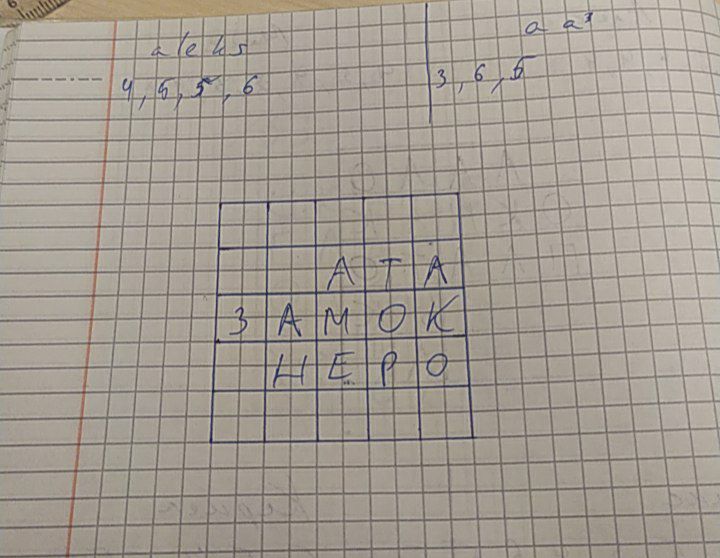 aleks
4, 5, 5, 6
3, 6, 5
АТА
ЗАМОК
НЕРО